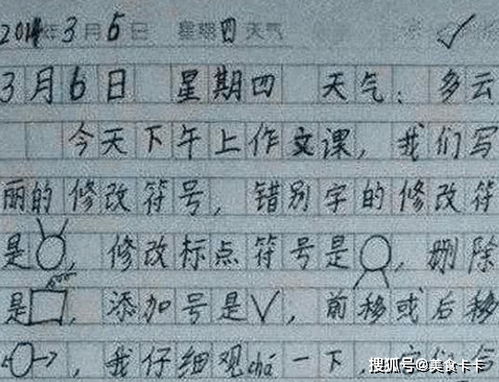 2014年3月6日 星期四 天气
3月6日 星期四 天气：多云
今天下午上作文课，我们写
丽的修改符号，错别字的修改符
是，修改标点符号是，删除
是，添加号是∨，前移或后移
，我仔细观chá一下，
搜狐号@美食卡卡